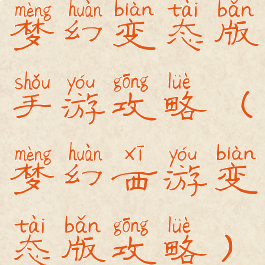 mèng huàn biàn tài bǎn
梦幻变态版
shǒu yóu gōng lüè
手游攻略（
mèng huàn xī yóu biàn
梦幻西游变
tài bǎn gōng lüè
态版攻略）